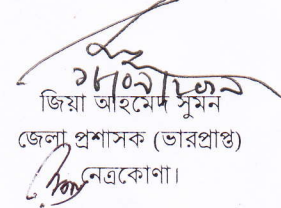 জিয়া আহমেদ সুমন
জেলা প্রশাসক (ভারপ্রাপ্ত)
নেত্রকোণা।